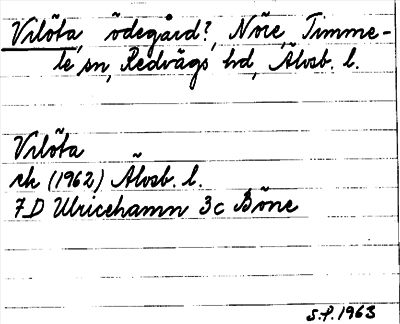 Vilõta, ödegård?, Nõre, Timme-
le sn, Redvägs hd, Älvsb. l.
Vilõta
rk (1962) Älvsb. l.
7D Ulricehamn 3c Bõne
S.P. 1963